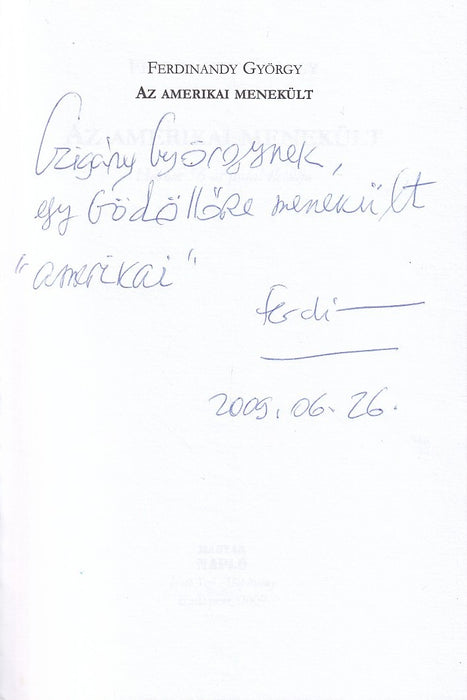 FERDINANDY GYÖRGY
AZ AMERIKAI MENEKÜLT
Czigány Györgynek,
egy Gödöllőre menekült
"amerikai"
Ferdi
2009. 06. 26.